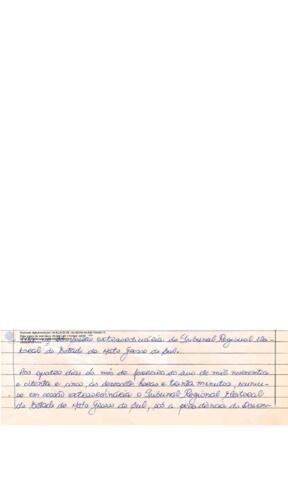 extraordinária do Tribunal Regional Elei-
toral do Estado de Mato Grosso do Sul.
Aos quatro dias do mês de fevereiro do ano de mil novecentos
e oitenta e cinco, às dezessete horas e trinta minutos, reuniu-
se em sessão extraordinária o Tribunal Regional Eleitoral
do Estado de Mato Grosso do Sul, sob a presidência do Desem-